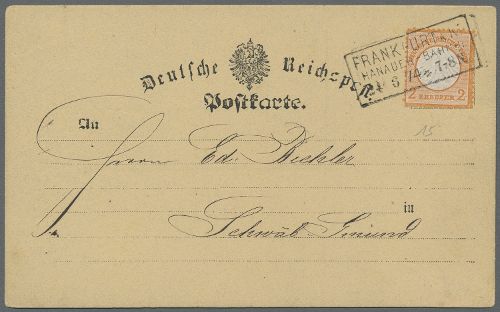 Deutsche Reichspost
Postkarte.
FRANKFURT
HANAUER BAHNH
6 74 7-8
2 KREUZER 2
15
An
Herrn Ed. Bichler
in
Schwäb. Gmünd